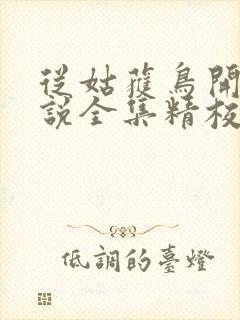 從姑蒦鳥開
說全集精校
低調的臺燈